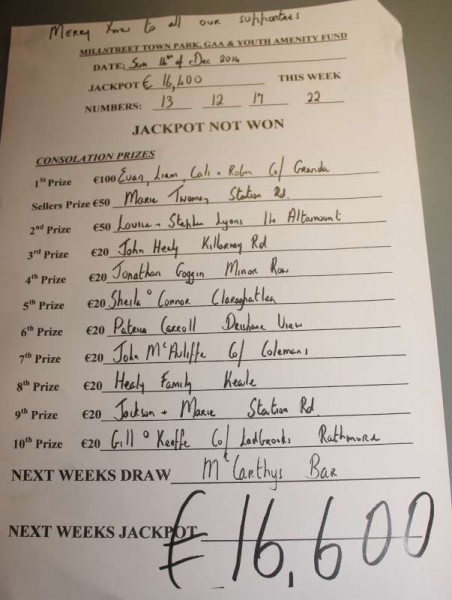 Merry Xmas to all our supporters
MILLSTREET TOWN PARK, GAA & YOUTH AMENITY FUND
DATE: Sun 14th of Dec 2014
JACKPOT € 16,400 THIS WEEK
NUMBERS: 13 12 17 22
JACKPOT NOT WON
CONSOLATION PRIZES
1st Prize €100 Evan, Liam, Cals + Robin C/o Granda
Sellers Prize €50 Marie Twomey Station Rd.
2nd Prize €50 Louise + Stephen Lyons Altamount
3rd Prize €20 John Healy Killarney Rd
4th Prize €20 Jonathan Goggin Minor Row
5th Prize €20 Sheila O Connor Claraghatlea
6th Prize €20 Patricia Carroll Drishane View
7th Prize €20 John McAuliffe C/o Colemans
8th Prize €20 Healy Family Keale
9th Prize €20 Jackson + Marie Station Rd
10th Prize €20 Gill O Keeffe C/o Ladbrooks Rathmore
NEXT WEEKS DRAW McCarthys Bar
NEXT WEEKS JACKPOT €16,600